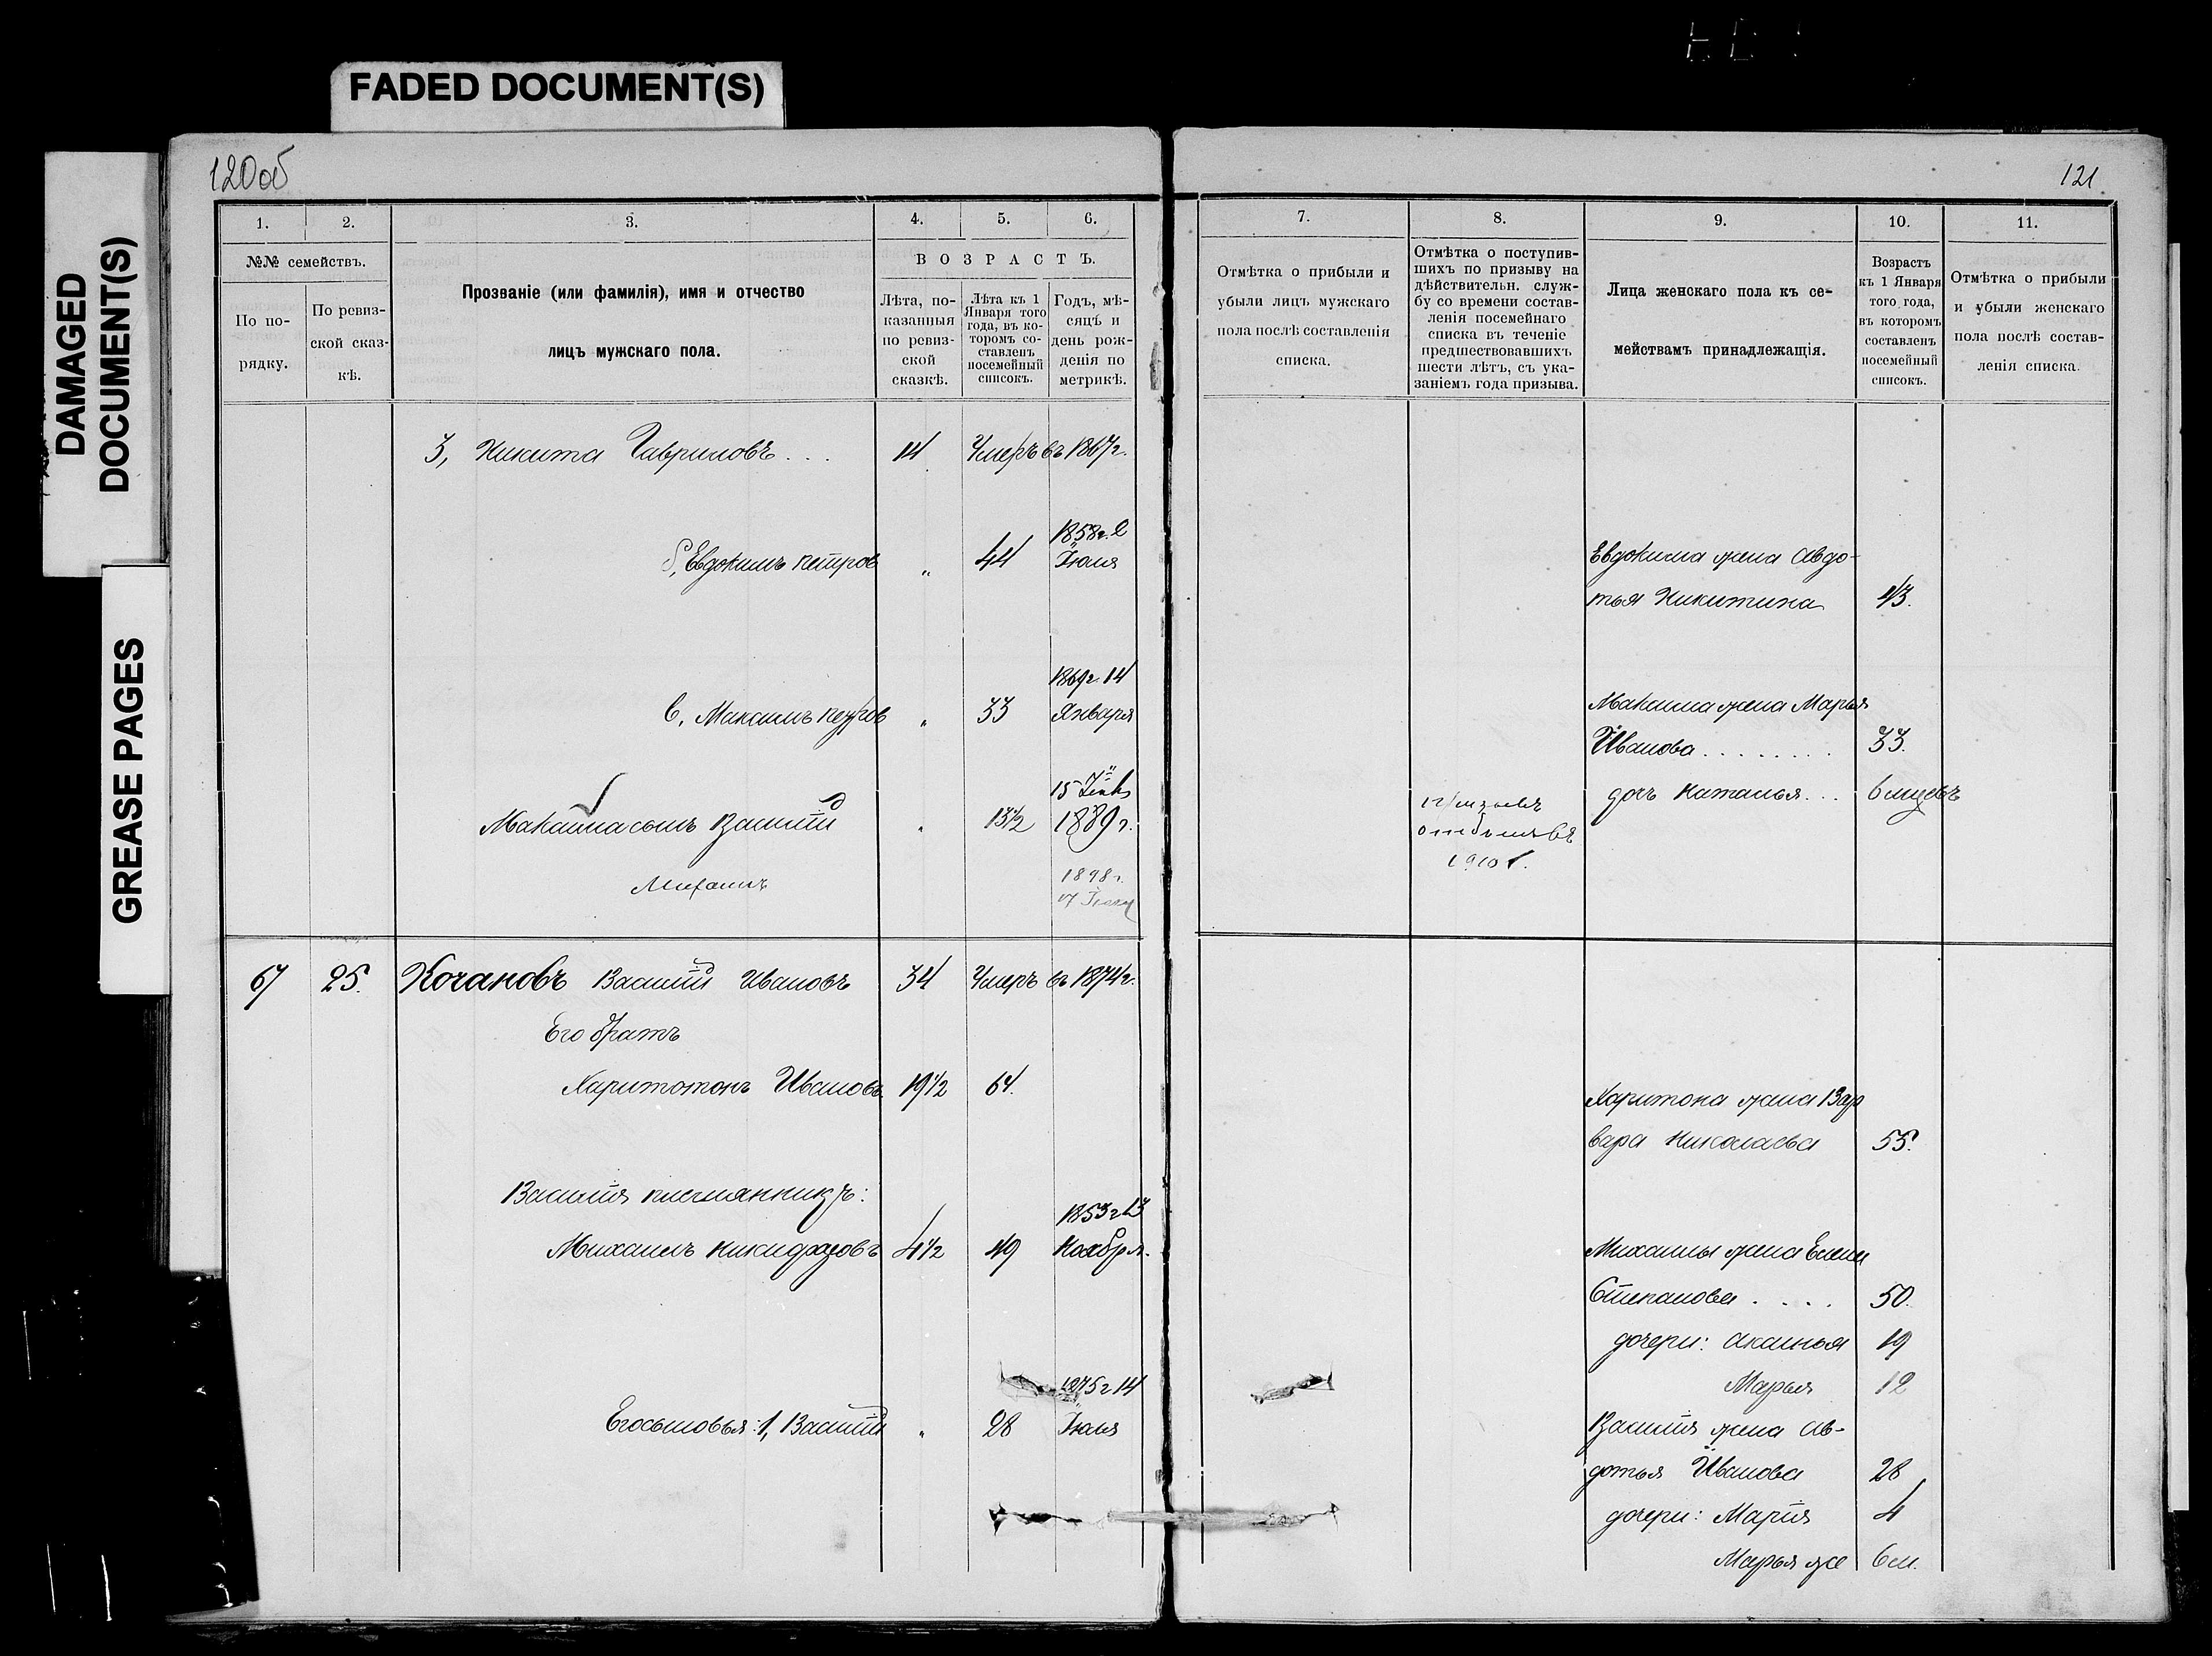 FADED DOCUMENT(S)
DAMAGED
DOCUMENT(S)
GREASE PAGES
120об
1.
2.
3.
4.
5.
6.
№№ семействъ.
По по-
рядку.
По ревиз-
ской сказ-
кѣ.
Прозваніе (или фамилія), имя и отчество
лицъ мужскаго пола.
ВОЗРАСТЪ.
Лѣта, по-
казанныя
по ревиз-
ской
сказкѣ.
Лѣта къ 1
Января того
года, въ ко-
торомъ со-
ставленъ
посемейный
списокъ.
Годъ, мѣ-
сяцъ и
день рож-
денія по
метрикѣ.
3, Никита Гавриловъ... 14 Умеръ въ 1867 г.
1858 г. 2
Евдокимъ Петров „ 44 Іюля
1869 г. 14
в, Максимъ Петров „ 33 Января
15
Максима сынъ Василій „ 13½ 1889 г.
Михаилъ 1898 г.
67 25. Кочановъ Василій Ивановъ 34 Умеръ въ 1874 г.
Его братъ
Харитотонъ Ивановъ 19½ 64.
Василія племянникъ:
1853 г 13
Михаилъ Никифоровъ 4½ 49 Ноября.
1875 г 14
Его сыновья: 1, Василій „ 28 Іюля
121
7.
8.
9.
10.
11.
Отмѣтка о прибыли и
убыли лицъ мужскаго
пола послѣ составленія
списка.
Отмѣтка о поступив-
шихъ по призыву на
дѣйствительн. служ-
бу со времени состав-
ленія посемейнаго
списка въ теченіе
предшествовавшихъ
шести лѣтъ, съ ука-
заніемъ года призыва.
Лица женскаго пола къ се-
мействамъ принадлежащія.
Возрастъ
къ 1 Января
того года,
въ которомъ
составленъ
посемейный
списокъ.
Отмѣтка о прибыли
и убыли женскаго
пола послѣ состав-
ленія списка.
Евдокима жена Авдо-
тья Никитина 43.
Максима жена Марья
Иванова........ 33.
дочь Наталья... 6 мцевъ
1910 г.
Харитона жена Вар
вара Николаева 55.
Михаилы жена Елена
Степанова.... 50.
дочери: Аксинья 19
Марья 12
Василія жена Ав-
дотья Иванова 28
дочери: Марія 4
Марья же 6 м.